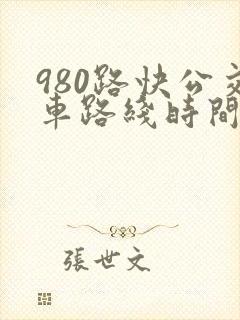 980路快公交
車路綫時間
張世文